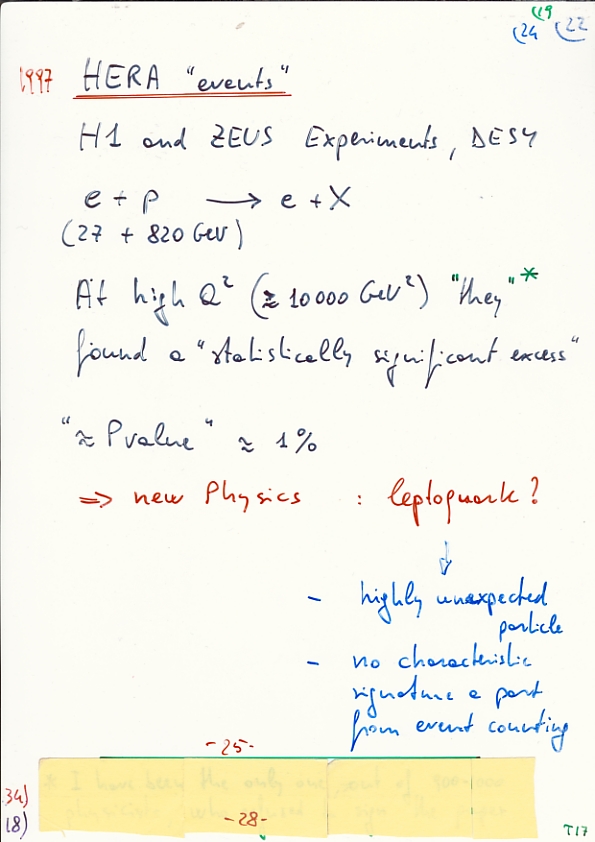 (19
(24 (22
1997 HERA "events"
H1 and ZEUS Experiments, DESY
e + p → e + X
(27 + 820 GeV)
At high Q² (≳ 10000 GeV²) "they"*
found a "statistically significant excess"
"≈ P value" ≈ 1%
⇒ new Physics : leptoquark?
↓
- highly unexpected
particle
- no characteristic
signature a part
from event counting
-25-
* I have been the only one, out of
physicists, who
34)
-28-
18)
T17